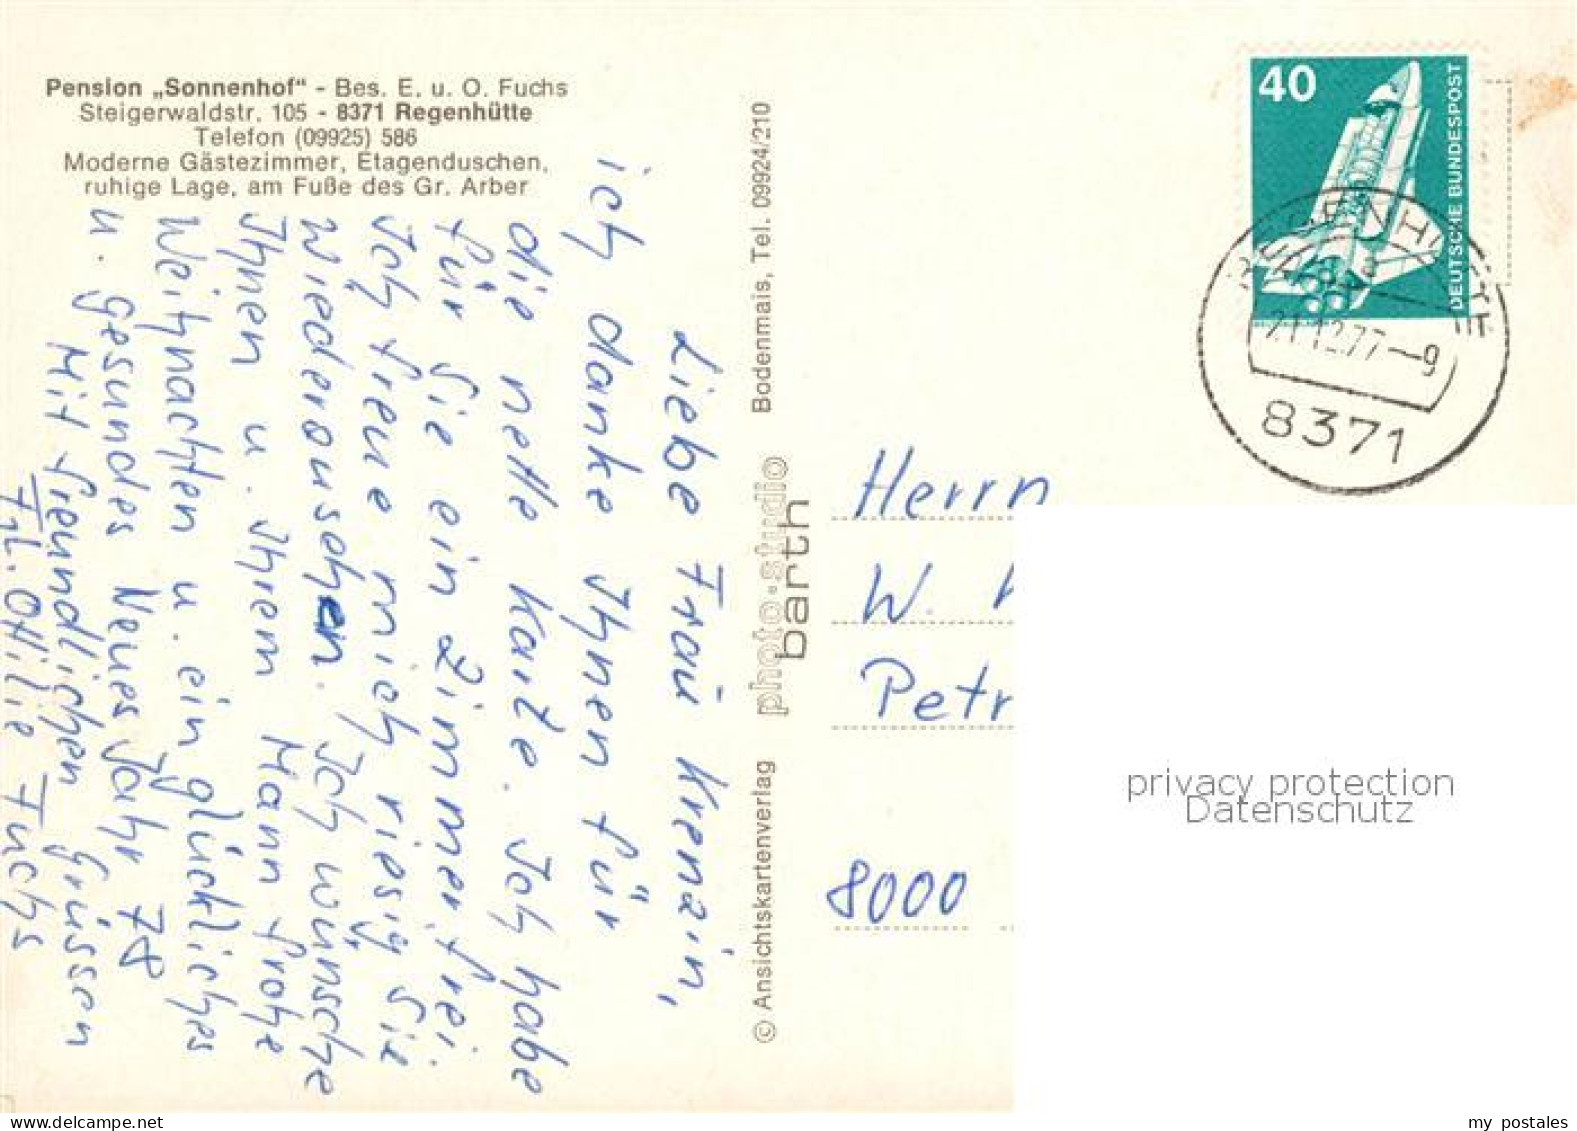 Pension „Sonnenhof“ - Bes. E. u. O. Fuchs
Steigerwaldstr. 105 - 8371 Regenhütte
Telefon (09925) 586
Moderne Gästezimmer, Etagenduschen,
ruhige Lage, am Fuße des Gr. Arber
Liebe Frau Krenzin,
ich danke Ihnen für
die nette Karte. Ich habe
für Sie ein Zimmer frei.
Ich freue mich riesig Sie
wiederzusehen. Ich wünsche
Ihnen u. Ihrem Mann frohe
Weihnachten u. ein glückliches
u. gesundes Neues Jahr 78
Mit freundlichen Grüssen
Frl. Ottilie Fuchs
© Ansichtskartenverlag photo-studio barth Bodenmais, Tel. 09924/210
40
DEUTSCHE BUNDESPOST
REGENHÜTTE
a
21.12.77-9
8371
Herrn
W.
Petr
8000
privacy protection
Datenschutz
www.delcampe.net
my postales